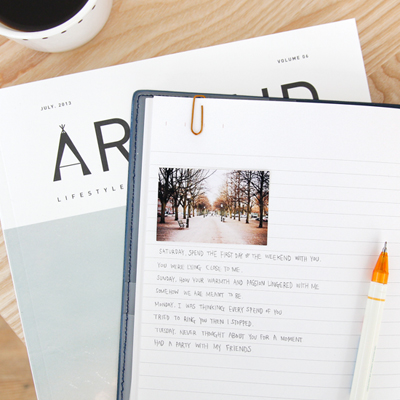 JULY, 2013
VOLUME 06
AR
LIFESTYLE
SATURDAY, SPEND THE FIRST DAY OF THE WEEKEND WITH YOU.
YOU WERE LYING CLOSE TO ME
SUNDAY, YOUR WARMTH AND PASSION LINGERED WITH ME
SOMEHOW WE ARE MEANT TO BE
MONDAY, I WAS THINKING EVERY SECOND OF YOU
TRIED TO RING YOU THEN I STOPPED
TUESDAY, NEVER THOUGHT ABOUT YOU FOR A MOMENT
HAD A PARTY WITH MY FRIENDS